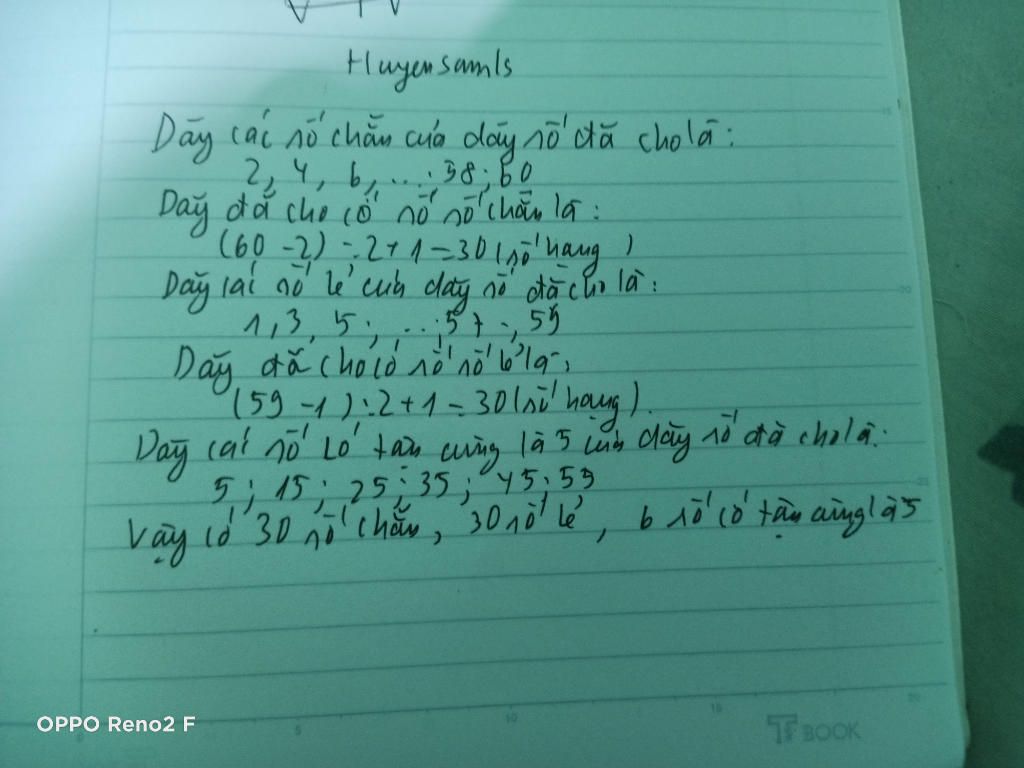 Huyensamls
Dãy các số chẵn của dãy số đã cho là:
2, 4, 6, ...; 58; 60
Dãy đã cho có số số chẵn là:
(60 - 2) : 2 + 1 = 30 (số hạng)
Dãy các số lẻ của dãy số đã cho là:
1, 3, 5; ...; 57; 59
Dãy đã cho có số số lẻ là:
(59 - 1) : 2 + 1 = 30 (số hạng).
Dãy các số có tận cùng là 5 của dãy số đã cho là:
5; 15; 25; 35; 45; 55
Vậy có 30 số chẵn, 30 số lẻ, 6 số có tận cùng là 5
OPPO Reno2 F
5 10 15 20
TF BOOK